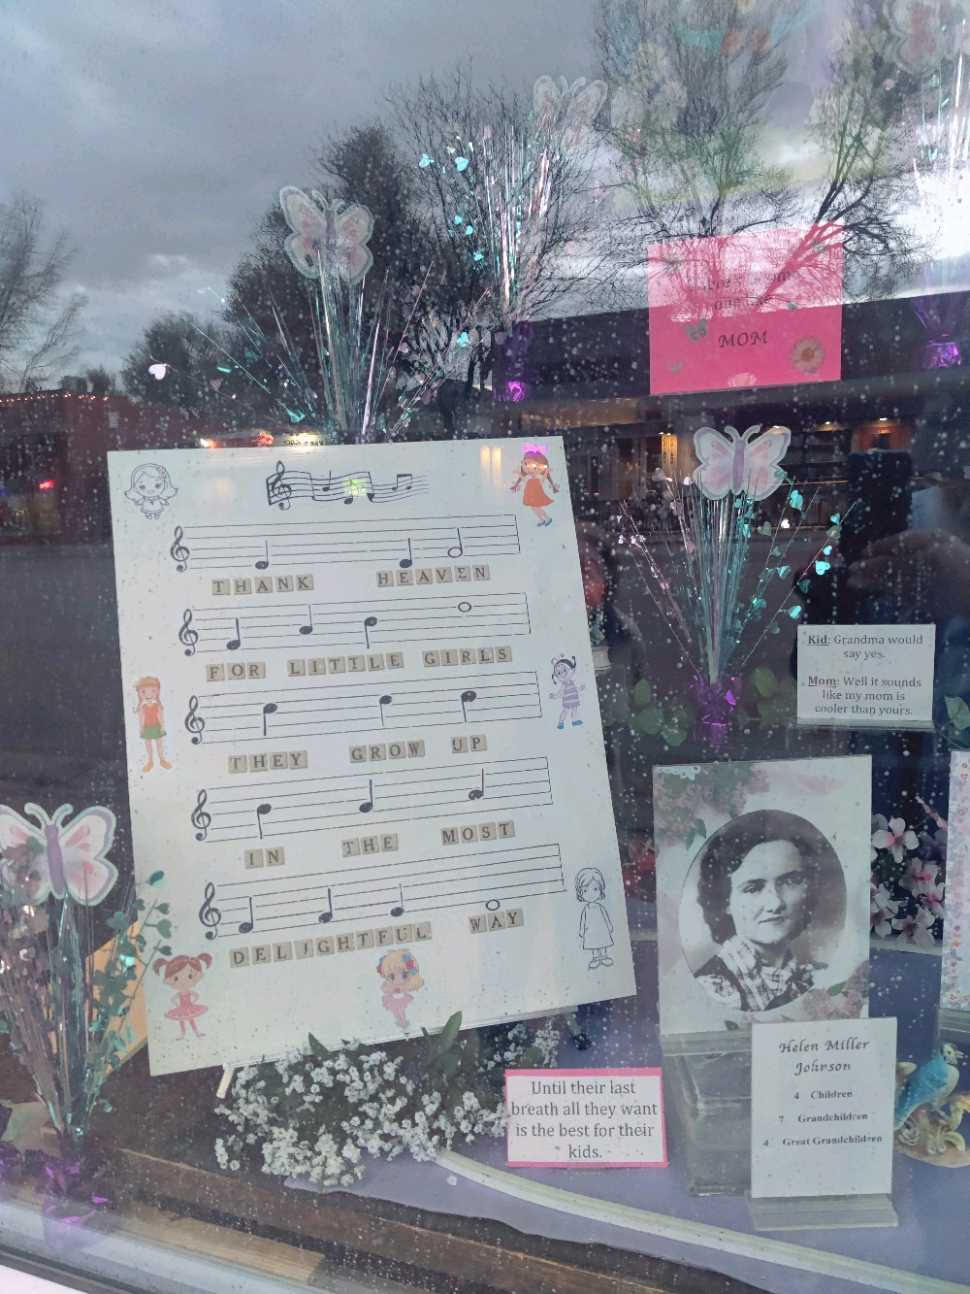 MOM
THANK HEAVEN
FOR LITTLE GIRLS
THEY GROW UP
IN THE MOST
DELIGHTFUL WAY
Kid: Grandma would
say yes.
Mom: Well it sounds
like my mom is
cooler than yours.
Until their last
breath all they want
is the best for their
kids.
Helen Miller
Johnson
4 Children
7 Grandchildren
4 Great Grandchildren